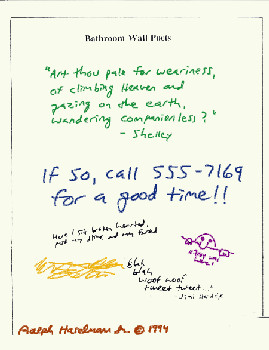 Bathroom Wall Poets
"Art thou pale for weariness,
of climbing Heaven and
gazing on the earth,
wandering companionless?"
- Shelley
If so, call 555-7169
for a good time!!
Here I sit broken hearted,
blah
blah
woof woof
tweet tweet...!
Jimi Hendrix
Ralph Hardman Jr. © 1994